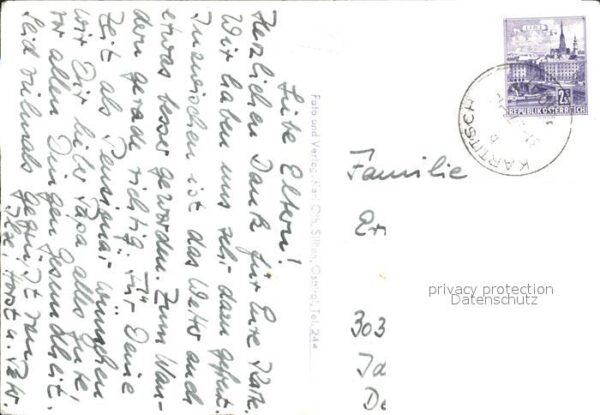 Liebe Eltern!
Herzlichen Dank für Eure Karte.
Wir haben uns sehr dazu gefreut.
Inzwischen ist das Wetter auch
etwas besser geworden. Zum Wan-
dern gerade richtig. Für Deine
Zeit als Pensionär wünschen
wir Dir lieber Papa alles Gute,
vor allen Dingen Gesundheit.
Seid vielmals gegrüßt von
Ilse, Horst u. Petr.
Foto und Verlag: Karl Sillian, Osttirol, Tel. 244
LINZ
2S
REPUBLIK ÖSTERREICH
KARTITSCH
Familie
Er
privacy protection
Datenschutz
303
Ja
De